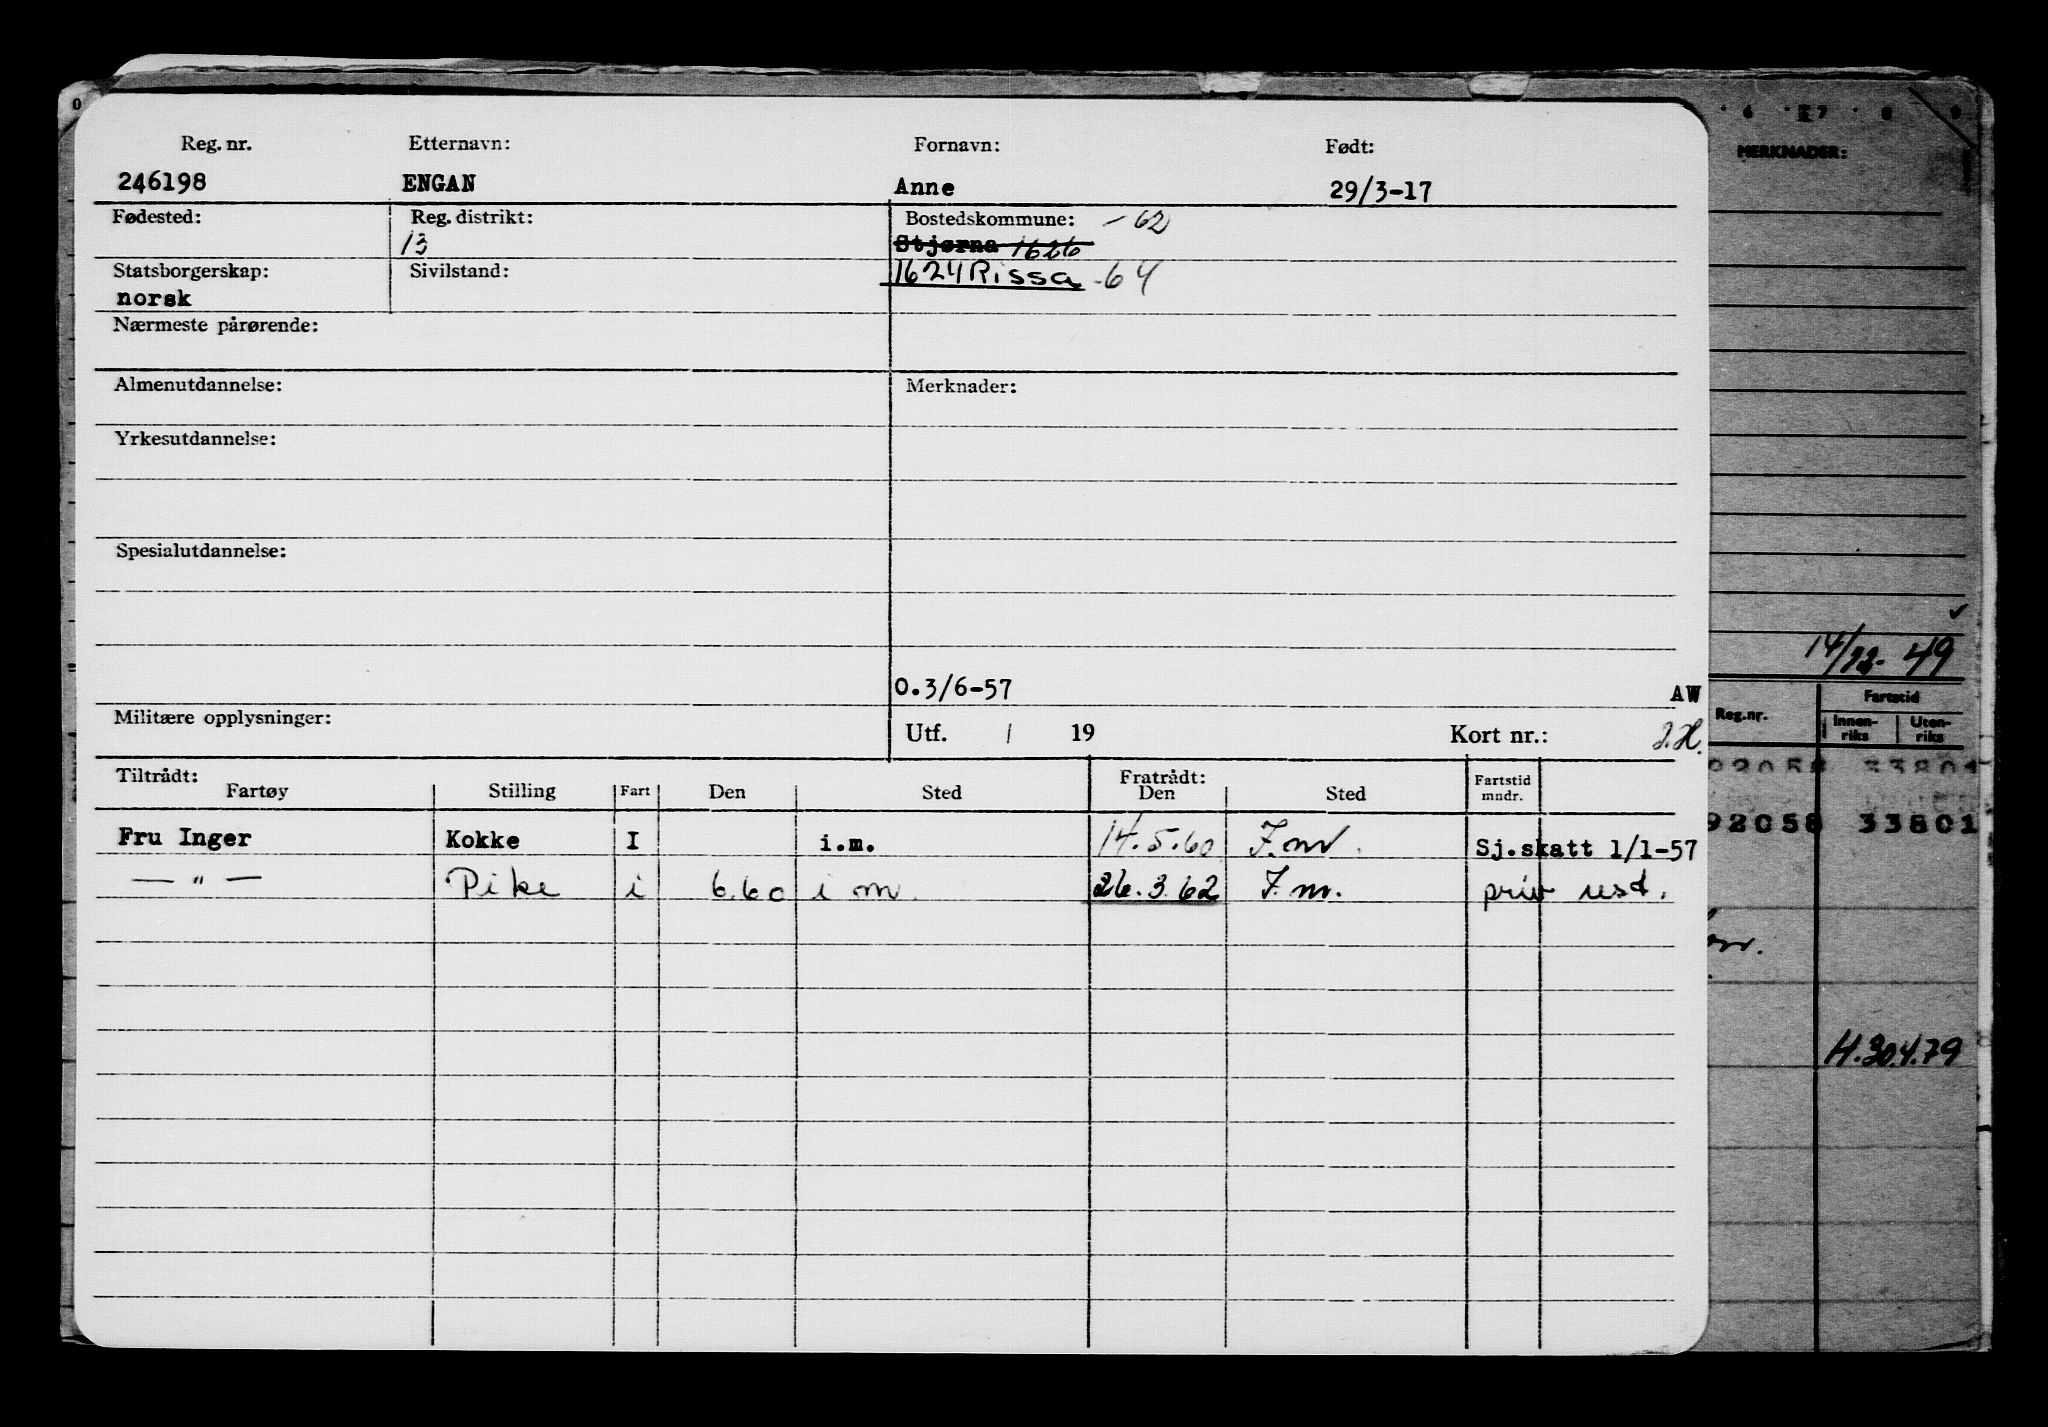 0
Reg. nr. Etternavn: Fornavn: Født:
246198 ENGAN Anne 29/3-17
Fødested: Reg. distrikt: Bostedskommune: -62
13 Stjørna 1626
Statsborgerskap: Sivilstand: 1624 Rissa -64
norsk
Nærmeste pårørende:
Almenutdannelse: Merknader:
Yrkesutdannelse:
Spesialutdannelse:
O.3/6-57 AW
Militære opplysninger: Utf. / 19 Kort nr.:
Tiltrådt: Fratrådt: Fartstid
Fartøy Stilling Fart Den Sted Den Sted mndr.
Fru Inger Kokke I i.m. 14.5.60 I.m. Sj.skatt 1/1-57
— " — Pike i 6.60 i m. 26.3.62 I.m. priv usd.
6 7 8 9
MERKNADER:
14/12-49
Reg.nr. Fartstid
Innen-riks Uten-riks
92058 33801
92058 33801
H.30.4.79